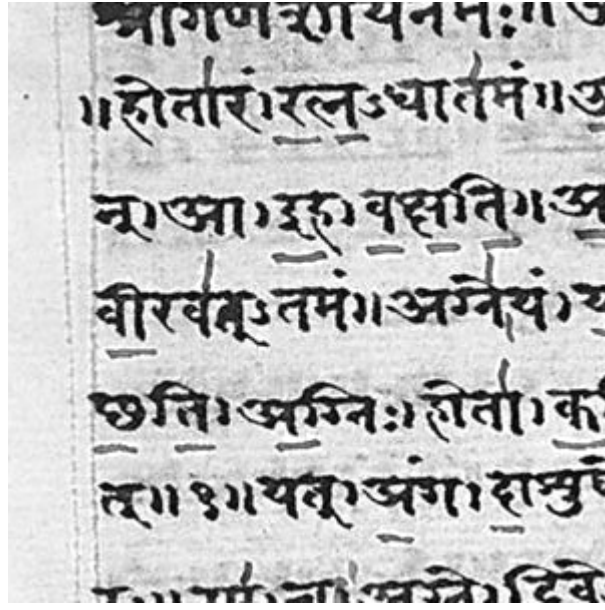 श्रीगणेशाय नमः॥
॥होतारं। रत्नऽधातमं॥ अ
न्। आ। इह। वक्षति॥ अ
वीरवत्ऽतमं॥ अग्ने। यं। य
छति। अग्निः। होता। क
त्॥१॥ यत्। अंग। दाशुषे
उप। त्वा। अग्ने। दिवे